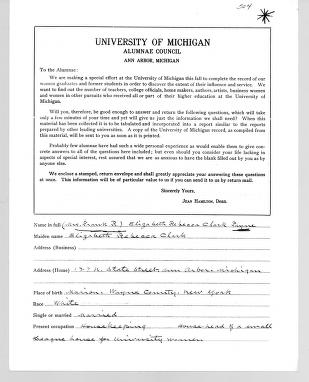 504
UNIVERSITY OF MICHIGAN
ALUMNAE COUNCIL
ANN ARBOR, MICHIGAN
To the Alumnae:
We are making a special effort at the University of Michigan this fall to complete the record of our
women graduates and former students in order to discover the extent of their influence and service. We
want to find out the number of teachers, college officials, home makers, authors, artists, business women
and women in other pursuits who received all or part of their higher education at the University of
Michigan.
Will you, therefore, be good enough to answer and return the following questions, which will take
only a few minutes of your time and yet will give us just the information we shall need? When this
material has been collected it is to be tabulated and incorporated into a report similar to the reports
prepared by other leading universities. A copy of the University of Michigan record, as compiled from
this material, will be sent to you as soon as it is printed.
Probably few alumnae have had such a wide personal experience as would enable them to give con-
crete answers to all of the questions here included; but even should you consider your life lacking in
aspects of special interest, rest assured that we are as anxious to have the blank filled out by you as by
anyone else.
We enclose a stamped, return envelope and shall greatly appreciate your answering these questions
at once. This information will be of particular value to us if you can send it to us by return mail.
Sincerely Yours,
JEAN HAMILTON, Dean.
Name in full (Mrs. Frank R.) Elizabeth Rebecca Clark Payne
Maiden name Elizabeth Rebecca Clark
Address (Business)
Address (Home) N. State Street, Ann Arbor, Michigan
Place of birth Marion, Wayne County, New York
Race White
Single or married Married
Present occupation Housekeeping House-head of a small
league house for University women